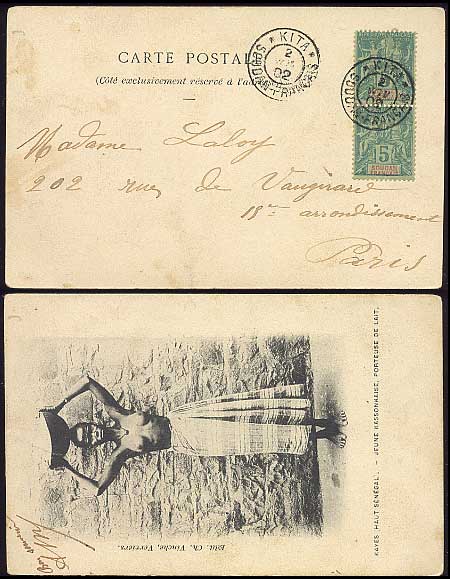 CARTE POSTALE
(Côté exclusivement réservé à l'adresse
* KITA *
2
02
SOUDAN-FRANÇAIS
* KITA *
2
02
SOUDAN-FRANÇAIS
5
Madame Laloy
202 rue de Vaugirard
15me arrondissement
Paris
KAYES (HAUT SÉNÉGAL). - JEUNE KASSONKAISE, PORTEUSE DE LAIT.
Édit. Ch. Vinche, Verviers.